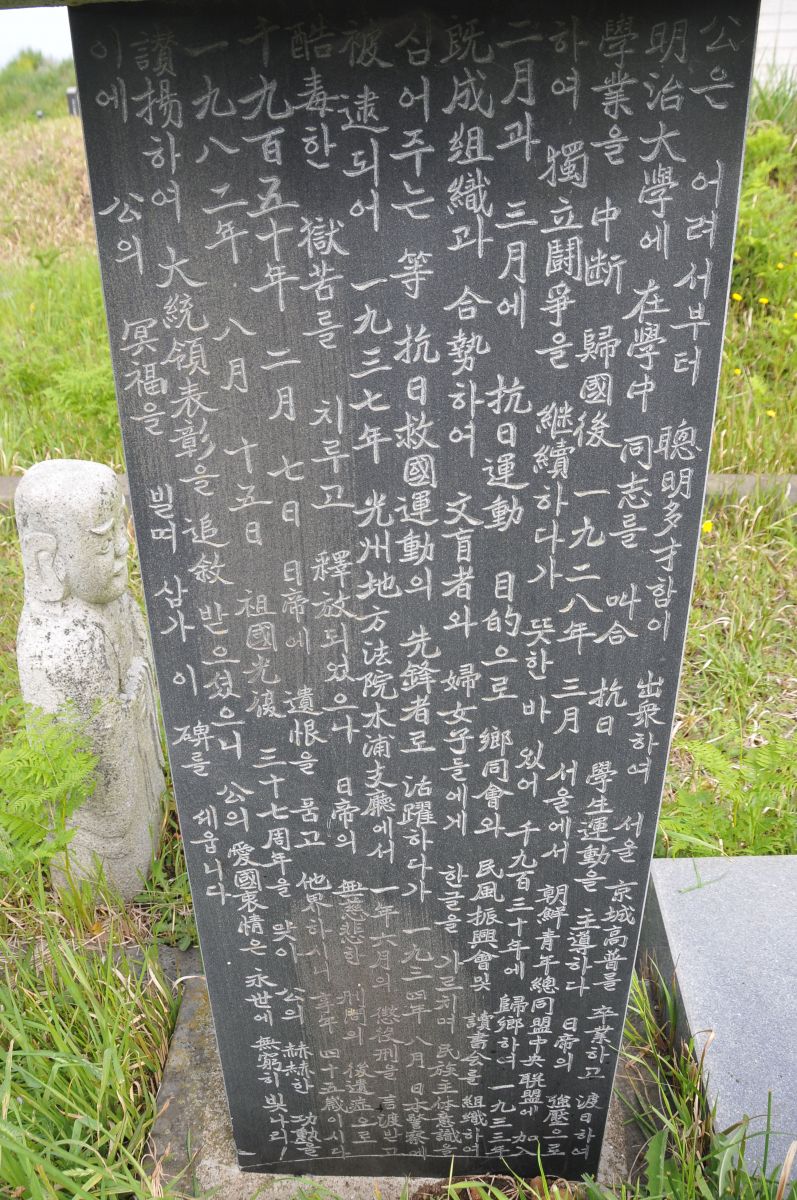 公은 어려서부터 聰明多才함이 出衆하여 서울 京城高普를 卒業하고 渡日하여
明治大學에 在學中 同志를 叫合 抗日 學生運動을 主導하다 日帝의 强壓으로
學業을 中斷 歸國後 一九二八年 三月 서울에서 朝鮮青年總同盟中央聯盟에 加入
하여 獨立鬪爭을 繼續하다가 뜻한 바 있어 千九百三十年에 歸鄕하여 一九三三年
二月과 三月에 抗日運動 目的으로 鄕同會와 民風振興會및 讀書会를 組織하여
既成組織과 合勢하여 文盲者와 婦女子들에게 한글을 가르치며 民族主体意識을
심어주는 等 抗日救國運動의 先鋒者로 活躍하다가 一九三四年 八月 日本警察에
被逮되어 一九三七年 光州地方法院木浦支廳에서 一年六月의 懲役刑을 言渡받고
酷毒한 獄苦를 치루고 釋放되었으나 日帝의 無慈悲한 刑問의 後遺症으로
千九百五十年 二月 七日 日帝에 遺恨을 품고 他界하시니 享年 四十五歲이시다
一九八二年 八月 十五日 祖國光復 三十七周年을 맞아 公의 赫赫한 功勳을
讚揚하여 大統領表彰을 追敘받으셨으니 公의 愛國衷情은 永世에 無窮히 빛나리!
이에 公의 冥福을 빌며 삼가 이 碑를 세웁니다